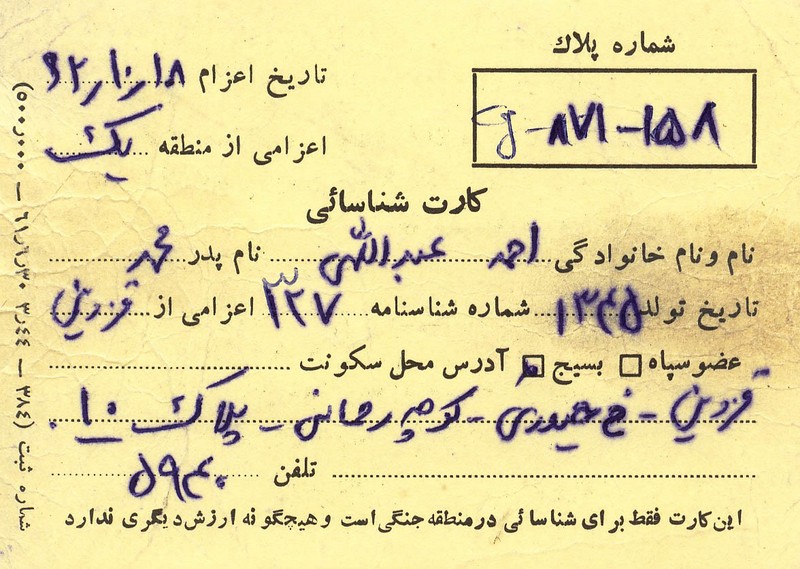 شماره پلاك
g-۸۷۱-۱۵۸
تاریخ اعزام ۶۲ر۱۰ر۱۸
اعزامی از منطقه یک
کارت شناسائی
نام ونام خانوادگی احمد عبداللهی نام پدر محمد
تاریخ تولد ۱۳۴۵ شماره شناسنامه ۳۲۷ اعزامی از قزوین
عضوسپاه بسیج آدرس محل سکونت
قزوین - خ - کوچه رحمانی - پلاک ۱۰
تلفن ۵۹۴۰
این کارت فقط برای شناسائی درمنطقه جنگی است وهیچگونه ارزش دیگری ندارد
شماره ثبت (۳۸۴ — ۳ر۴۴ ۶۱ر۶ر۳۰ — ۵۰۰ر۰۰۰)